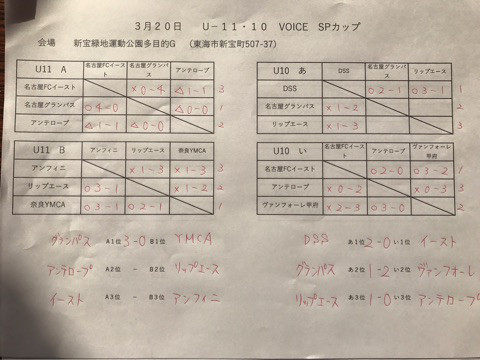 3月20日 U-11・10 VOICE SPカップ
会場 新宝緑地運動公園多目的G (東海市新宝町507-37)
U11 A 名古屋FCイースト 名古屋グランパス アンテロープ
名古屋FCイースト ×0-4 △1-1 3
名古屋グランパス ○4-0 △0-0 1
アンテロープ △1-1 △0-0 2
U10 あ DSS 名古屋グランパス リップエース
DSS ○2-1 ○3-1 1
名古屋グランパス ×1-2 2
リップエース ×1-3 3
U11 B アンフィニ リップエース 奈良YMCA
アンフィニ ×1-3 ×1-3 3
リップエース ○3-1 ×1-2 2
奈良YMCA ○3-1 ○2-1 1
U10 い 名古屋FCイースト アンテロープ ヴァンフォーレ甲府
名古屋FCイースト ○2-0 ○3-2 1
アンテロープ ×0-2 ×0-3 3
ヴァンフォーレ甲府 ×2-3 ○3-0 2
グランパス A1位 3-0 B1位 YMCA
アンテロープ A2位 - B2位 リップエース
イースト A3位 - B3位 アンフィニ
DSS あ1位 2-0 い1位 イースト
グランパス あ2位 1-2 い2位 ヴァンフォーレ
リップエース あ3位 1-0 い3位 アンテロープ